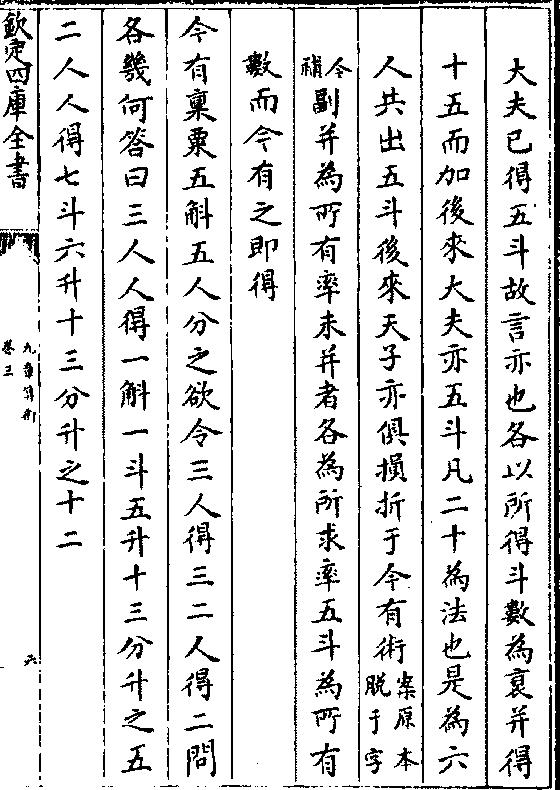 大夫已得五斗故言亦也各以所得斗數為衰并得
十五而加後來大夫亦五斗凡二十為法也是為六
人共出五斗後來天子亦俱損折于今有術案原本脱于字
今補副并為所有率未并者各為所求率五斗為所有
數而今有之即得
今有稟粟五斛五人分之欲令三人得三二人得二問
各幾何答曰三人人得一斛一斗五升十三分升之五
二人人得七斗六升十三分升之十二
欽定四庫全書
九章算術
卷三
六